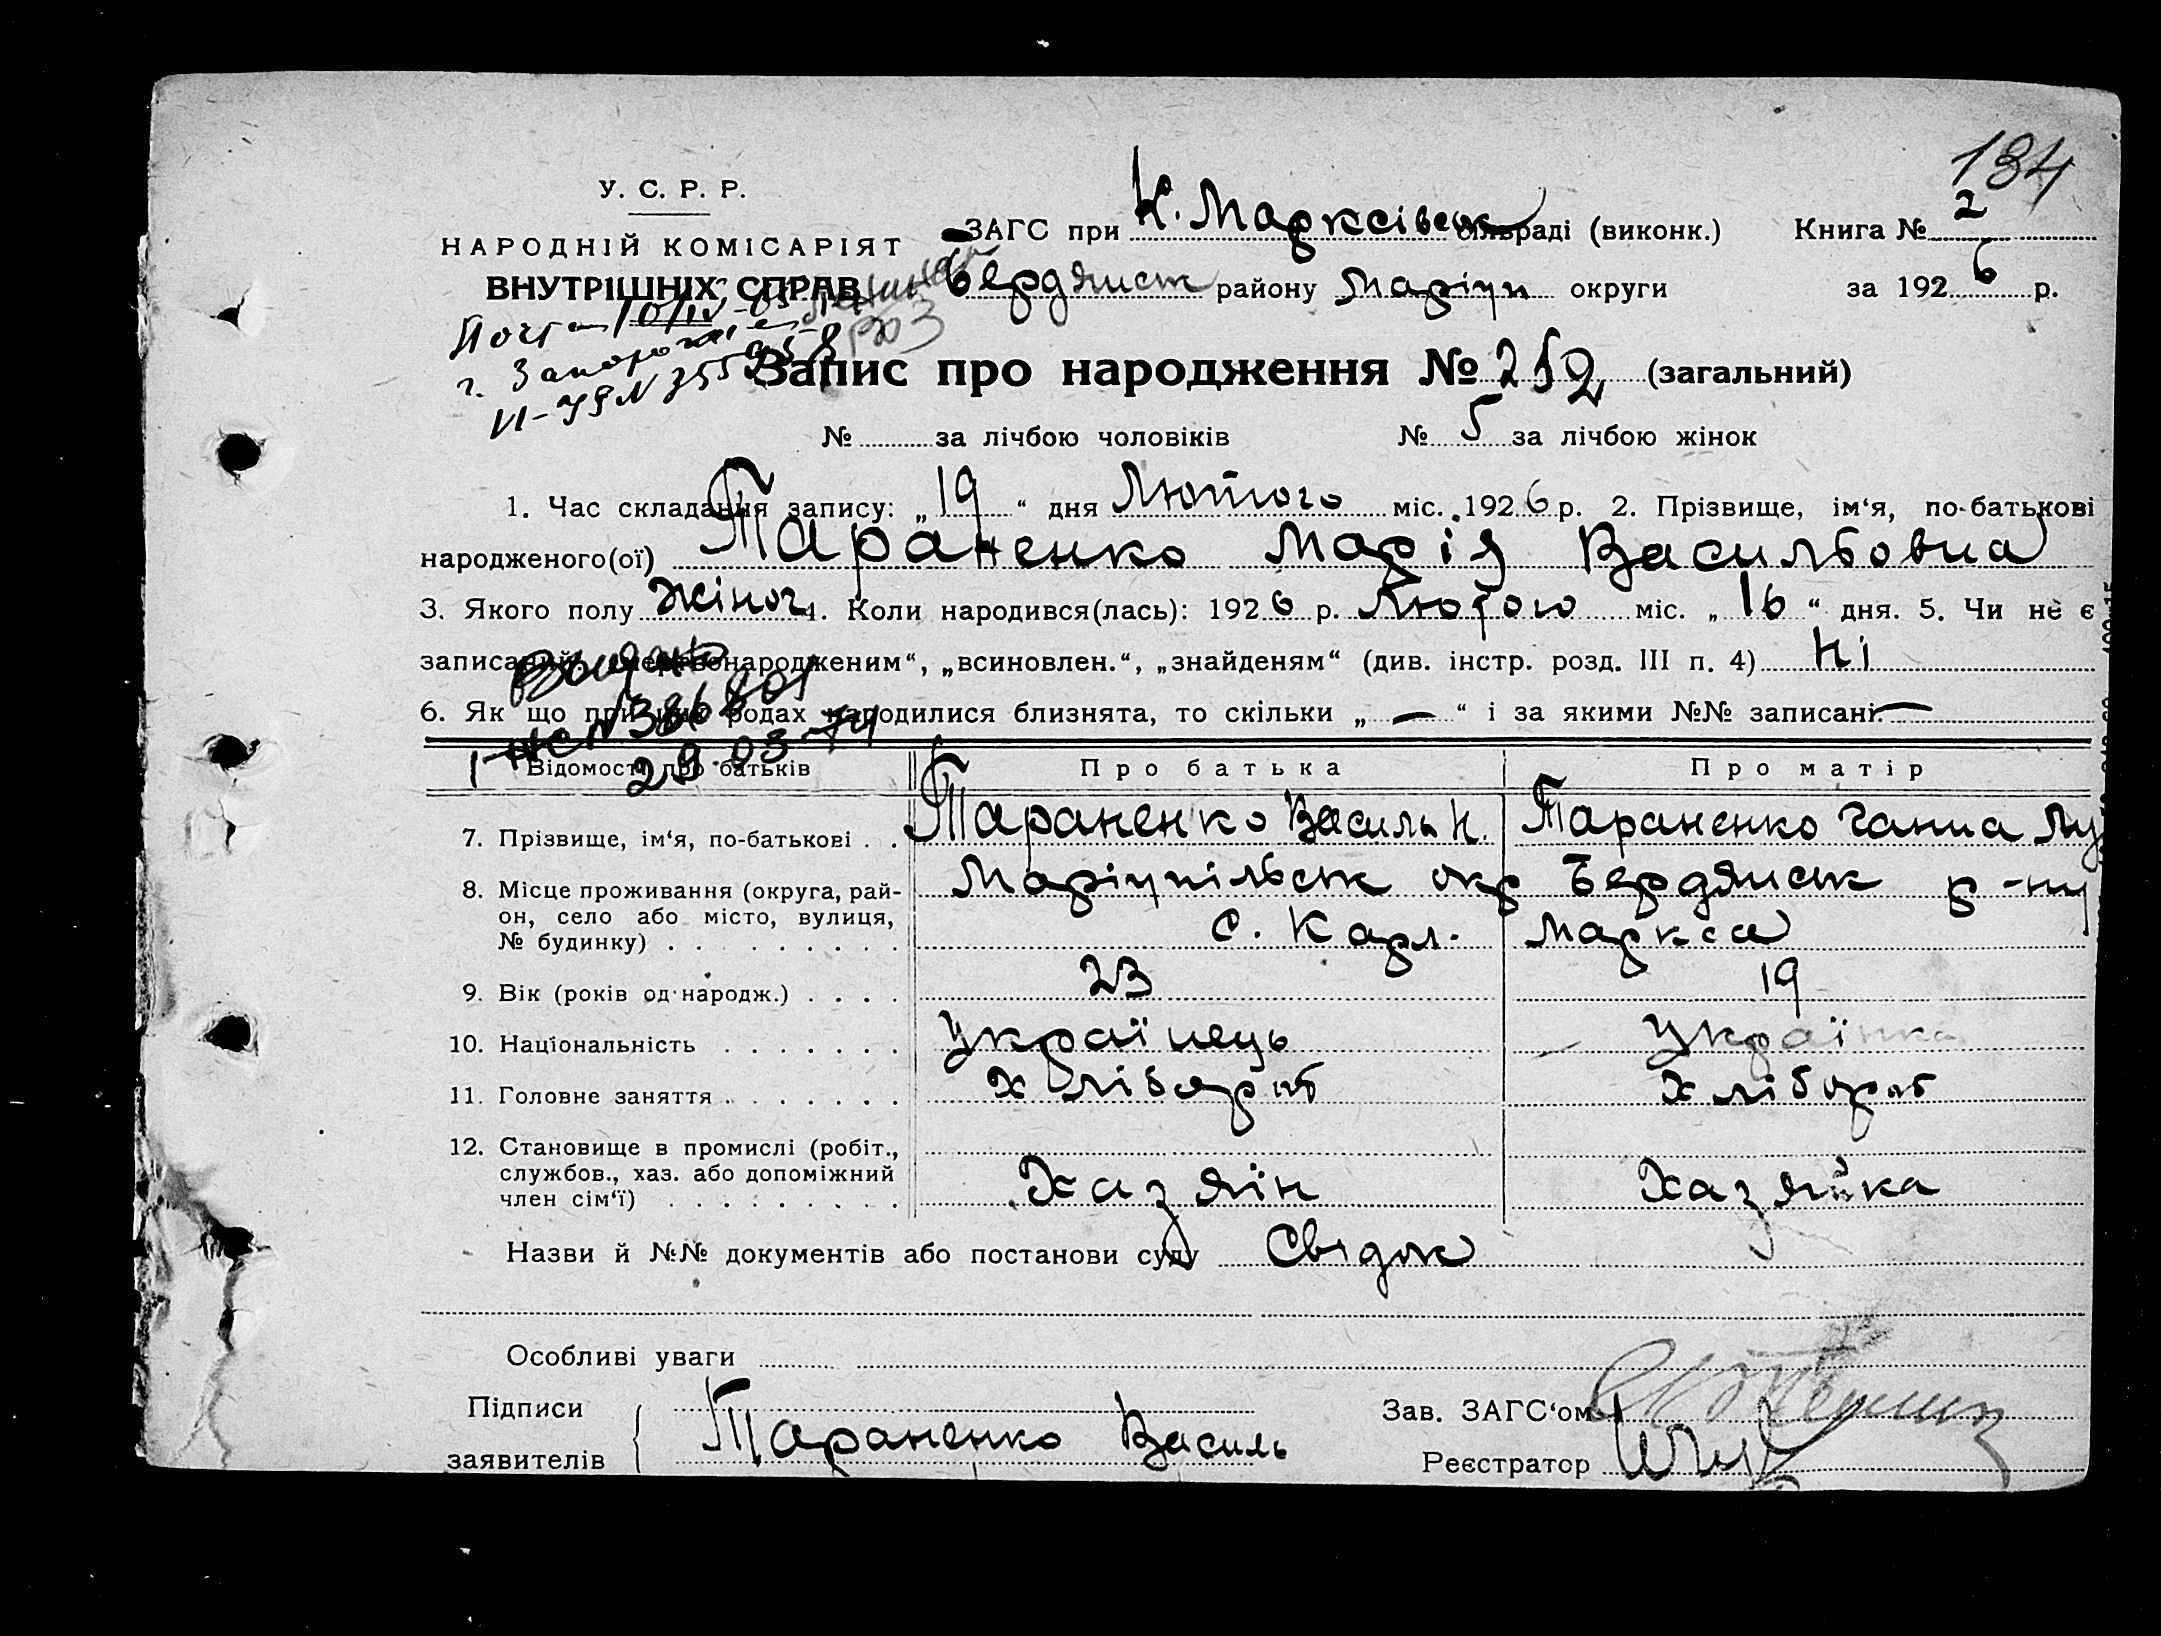 134
У. С. Р. Р.
НАРОДНІЙ КОМІСАРІЯТ
ВНУТРІШНІХ СПРАВ
ЗАГС при К. Марксівськ сільраді (виконк.) Книга № 2
Бердянськ району Маріуп округи за 1926 р.
Запис про народження № 252 (загальний)
№ за лічбою чоловіків № 5 за лічбою жінок
1. Час складання запису: „19“ дня Лютого міс. 1926 р. 2. Прізвище, ім‘я, по-батькові
народженого(ої) Тараненко Марія Васильовна
3. Якого полу Жіноч 4. Коли народився(лась): 1926 р. Лютого міс. „16“ дня. 5. Чи не є
записаний „мертвонародженим“, „всиновлен.“, „знайденям“ (див. інстр. розд. III п. 4) Ні
6. Як що при цих родах народилися близнята, то скільки „—“ і за якими №№ записані. —
Видано
29.03.74
Відомості про батьків Про батька Про матір
7. Прізвище, ім‘я, по-батькові . . Тараненко Василь Н. Тараненко Ганна Лу
8. Місце проживання (округа, рай-
он, село або місто, вулиця,
№ будинку) . . . . . . . . .
Маріупільськ окр Бердянськ р-ну
с. Карл. Маркса
9. Вік (років од народж.) . . . . 23 19
10. Національність . . . . . . . Українець Українка
11. Головне заняття . . . . . . . Хлібороб Хлібороб
12. Становище в промислі (робіт.,
службов., хаз. або допоміжний
член сім‘ї) . . . . . . . . . Хазяїн Хазяйка
Назви й №№ документів або постанови суду Свідок
Особливі уваги
Підписи
заявителів Тараненко Василь
Зав. ЗАГС‘ом
Реєстратор